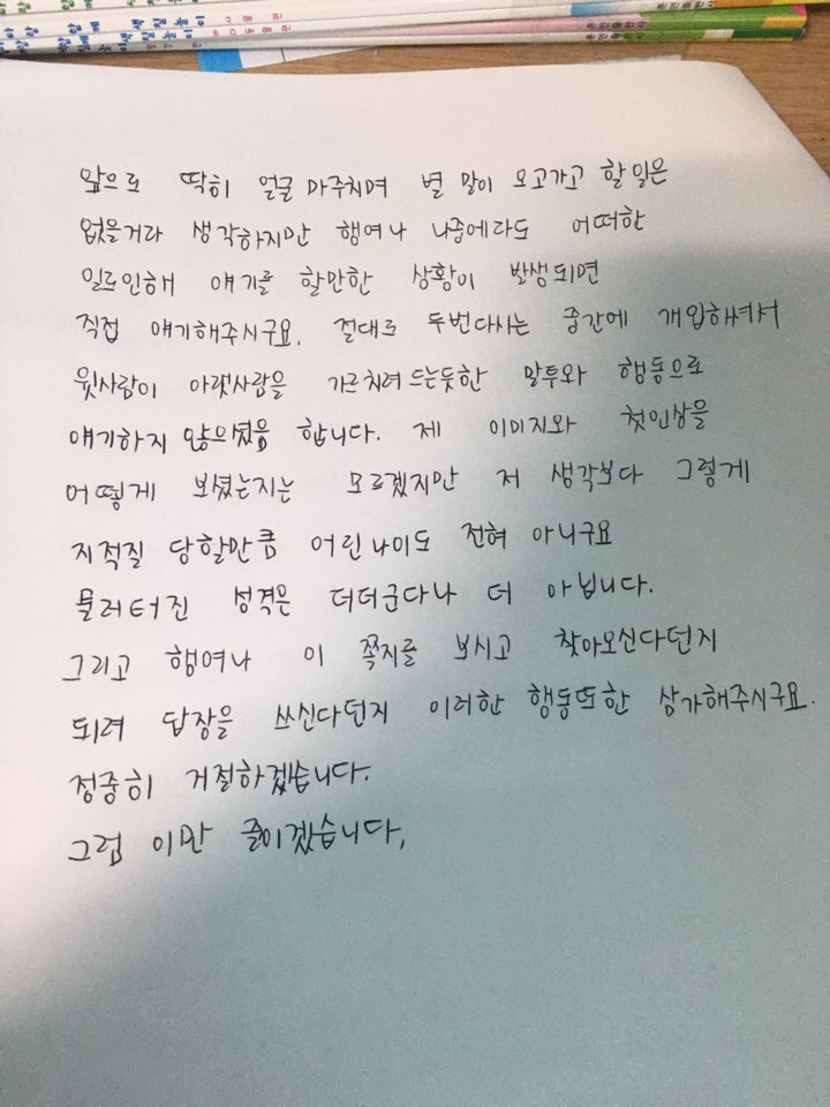 앞으로 딱히 얼굴 마주치며 별 말이 오고가고 할 일은
없을거라 생각하지만 행여나 나중에라도 어떠한
일로인해 얘기를 할만한 상황이 발생되면
직접 얘기해주시구요. 절대로 두번다시는 중간에 개입하셔서
윗사람이 아랫사람을 가르치려 드는듯한 말투와 행동으로
얘기하지 않으셨음 합니다. 제 이미지와 첫인상을
어떻게 보셨는지는 모르겠지만 저 생각보다 그렇게
지적질 당할만큼 어린나이도 전혀 아니구요
물러터진 성격은 더더군다나 더 아닙니다.
그리고 행여나 이 쪽지를 보시고 찾아오신다던지
되려 답장을 쓰신다던지 이러한 행동또한 삼가해주시구요.
정중히 거절하겠습니다.
그럼 이만 줄이겠습니다,